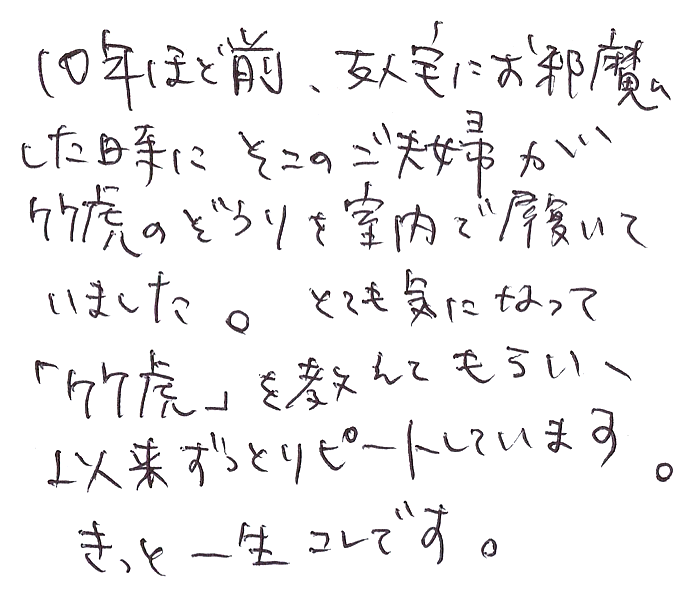 10年ほど前、友人宅にお邪魔
した時に そこのご夫婦が
竹虎のぞうりを室内で履いて
いました。とても気になって
「竹虎」を教えてもらい、
以来ずっとリピートしています。
きっと一生コレです。